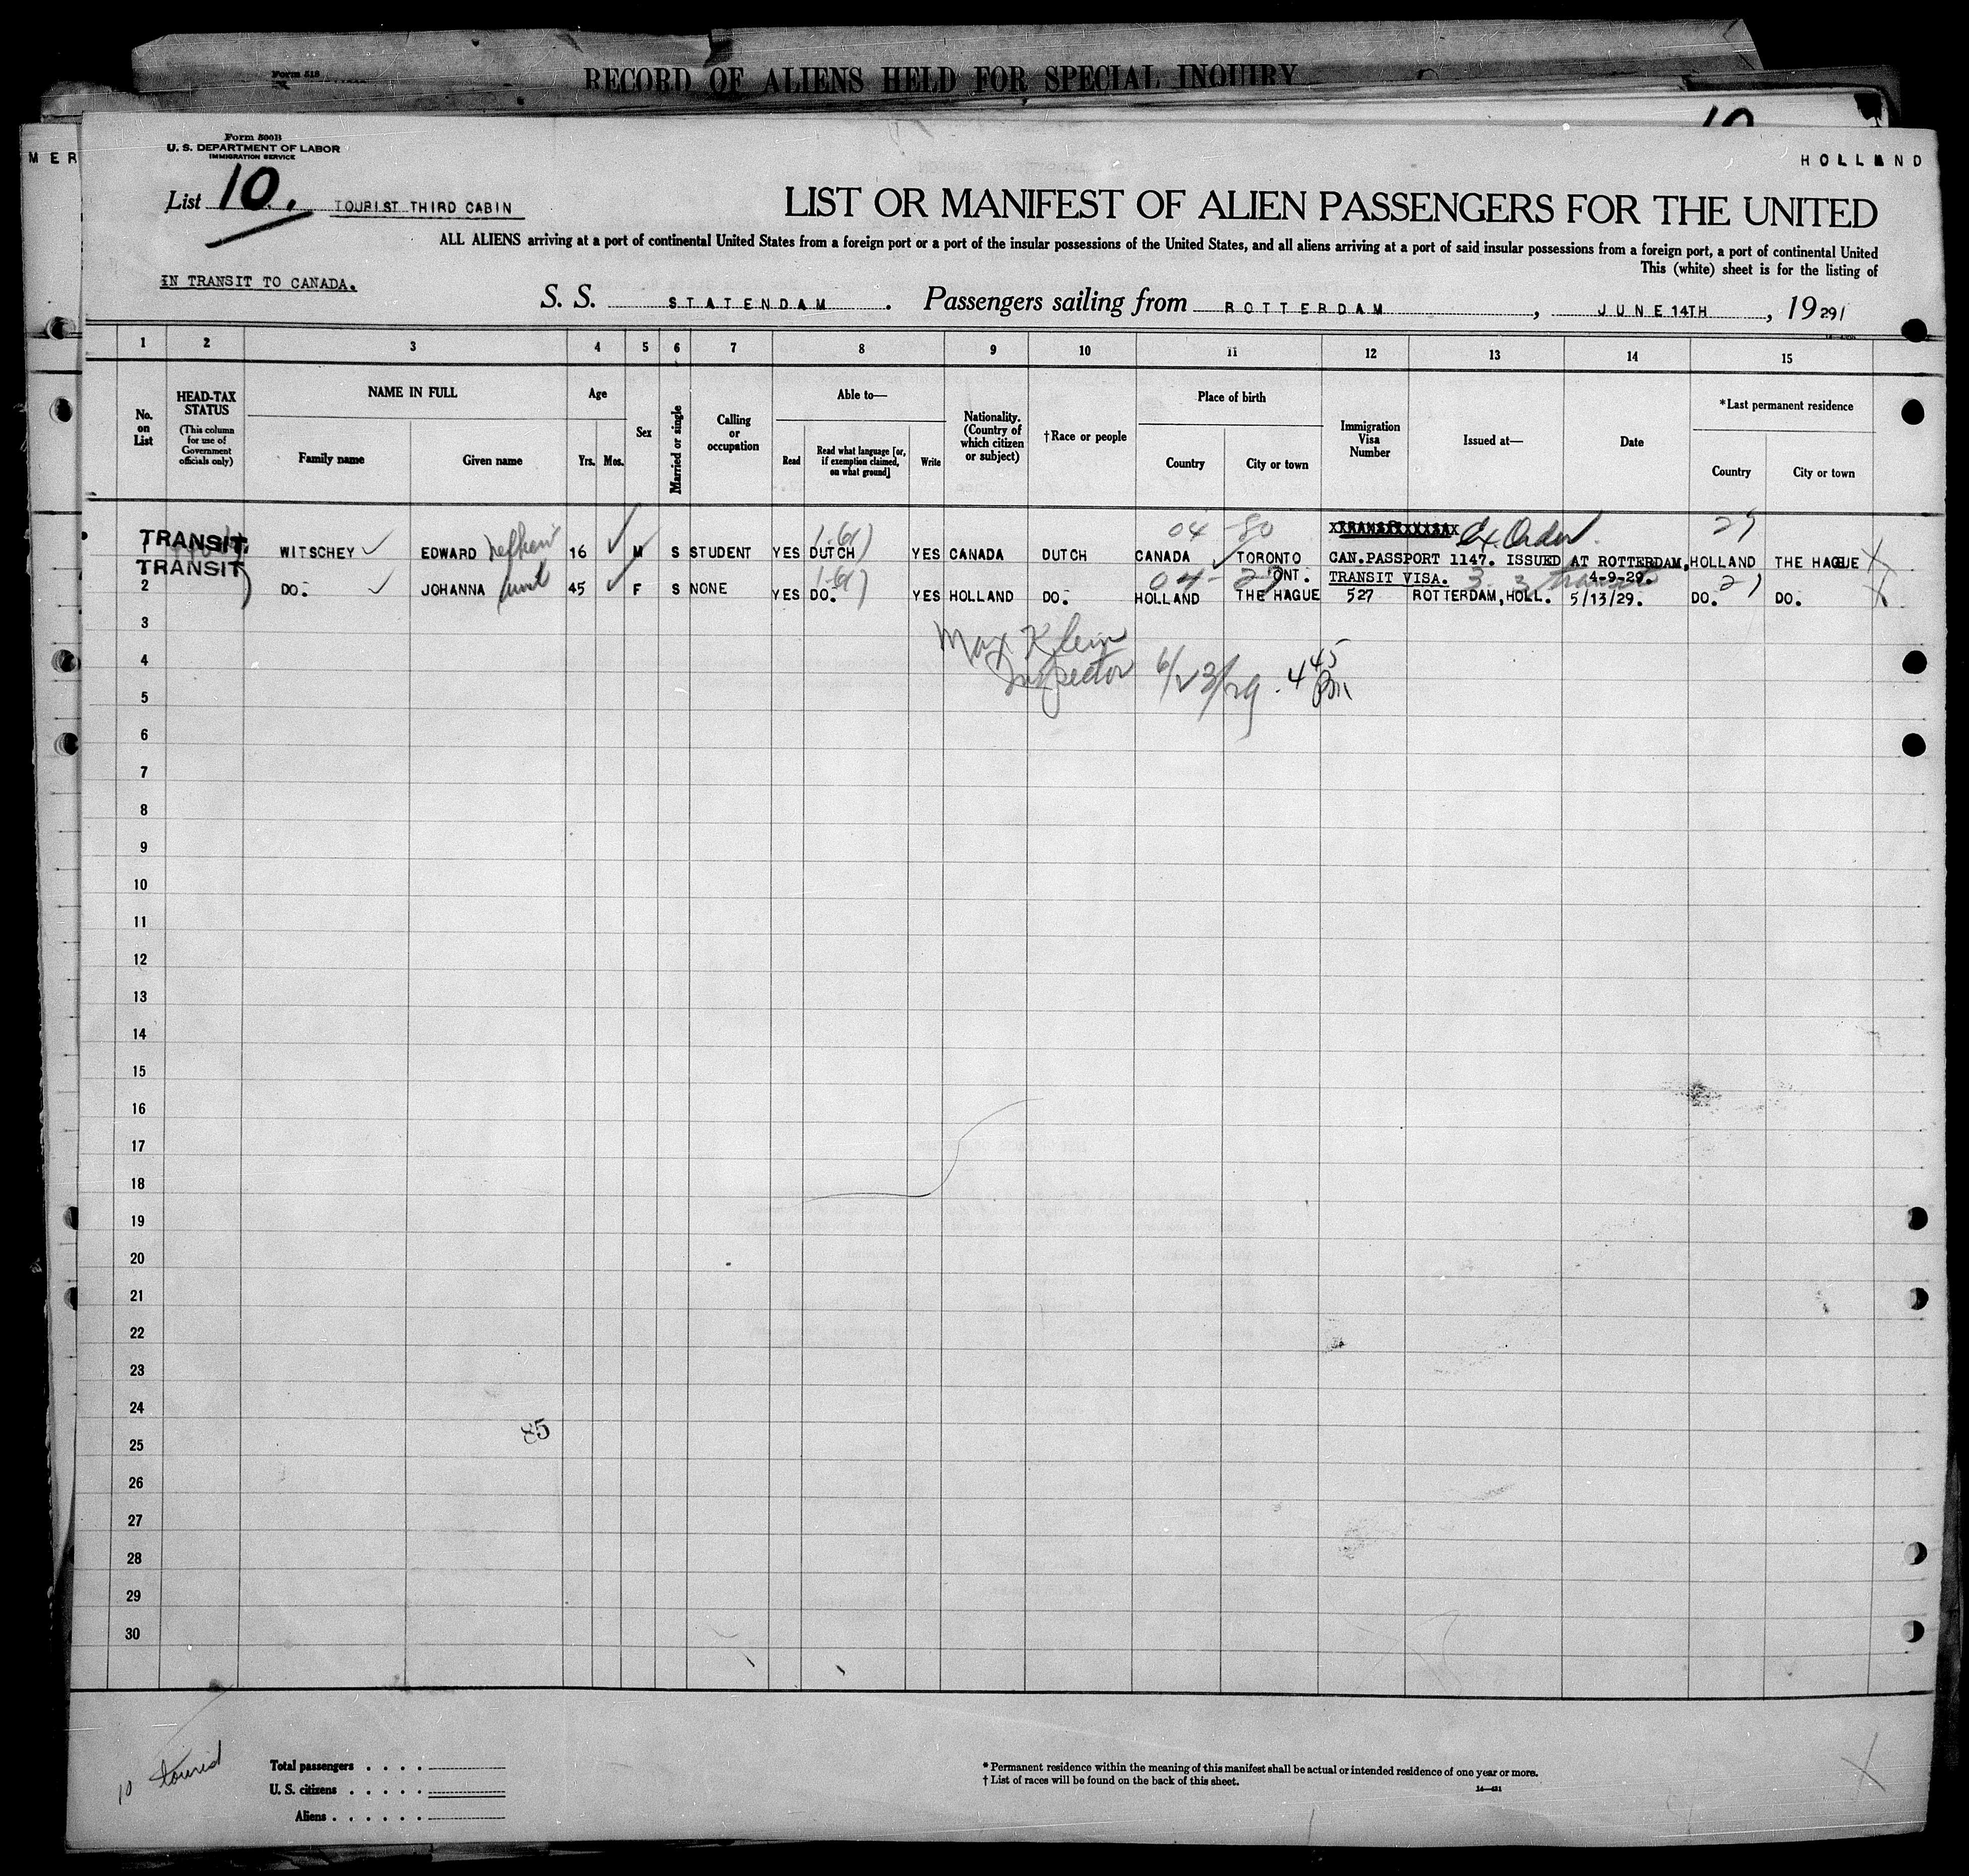 Form 518
RECORD OF ALIENS HELD FOR SPECIAL INQUIRY
10
MER
Form 500B
U. S. DEPARTMENT OF LABOR
IMMIGRATION SERVICE
HOLLAND
List 10. TOURIST THIRD CABIN
LIST OR MANIFEST OF ALIEN PASSENGERS FOR THE UNITED
ALL ALIENS arriving at a port of continental United States from a foreign port or a port of the insular possessions of the United States, and all aliens arriving at a port of said insular possessions from a foreign port, a port of continental United
This (white) sheet is for the listing of
IN TRANSIT TO CANADA.
S. S. STATENDAM. Passengers sailing from ROTTERDAM, JUNE 14TH, 1929
1 2 3 4 5 6 7 8 9 10 11 12 13 14 15
No. on List
HEAD-TAX STATUS
(This column for use of Government officials only)
NAME IN FULL
Family name
Given name
Age
Yrs. Mos.
Sex
Married or single
Calling or occupation
Able to—
Read
Read what language [or, if exemption claimed, on what ground]
Write
Nationality. (Country of which citizen or subject)
†Race or people
Place of birth
Country
City or town
Immigration Visa Number
Issued at—
Date
*Last permanent residence
Country
City or town
04-80 Ex. Order 29
TRANSIT
1 WITSCHEY EDWARD nephew 16 M S STUDENT YES DUTCH YES CANADA DUTCH CANADA TORONTO ONT. CAN.PASSPORT 1147. ISSUED AT ROTTERDAM, 4-9-29. HOLLAND THE HAGUE
TRANSIT
TRANSIT VISA.
2 DO. JOHANNA aunt 45 F S NONE YES DO. YES HOLLAND DO. HOLLAND THE HAGUE 527 ROTTERDAM, HOLL. 5/13/29. DO. DO.
3
Max Klein
Inspector 6/23/29. 4 45 Pm
4
5
6
7
8
9
10
11
12
13
14
15
16
17
18
19
20
21
22
23
24
85
25
26
27
28
29
30
10 tourist
Total passengers
U. S. citizens
Aliens
* Permanent residence within the meaning of this manifest shall be actual or intended residence of one year or more.
† List of races will be found on the back of this sheet.
14—421